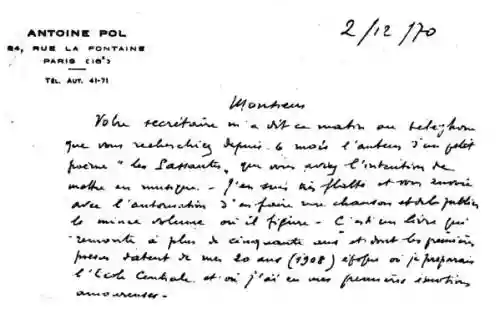 ANTOINE POL
24, RUE LA FONTAINE
PARIS (16e)
TÉL. AUT. 41-71
2/12/70
Monsieur
Votre secrétaire m'a dit ce matin au téléphone
que vous recherchiez depuis 6 mois l'auteur d'un petit
poème "les Passantes", que vous aviez l'intention de
mettre en musique. - J'en suis très flatté et vous envoie
avec l'autorisation d'en faire une chanson et de la publier
le mince volume où il figure - C'est un livre qui
remonte à plus de cinquante ans et dont les premières
pièces datent de mes 20 ans (1908) époque où je préparais
l'Ecole Centrale et où j'ai eu mes premières émotions
amoureuses -